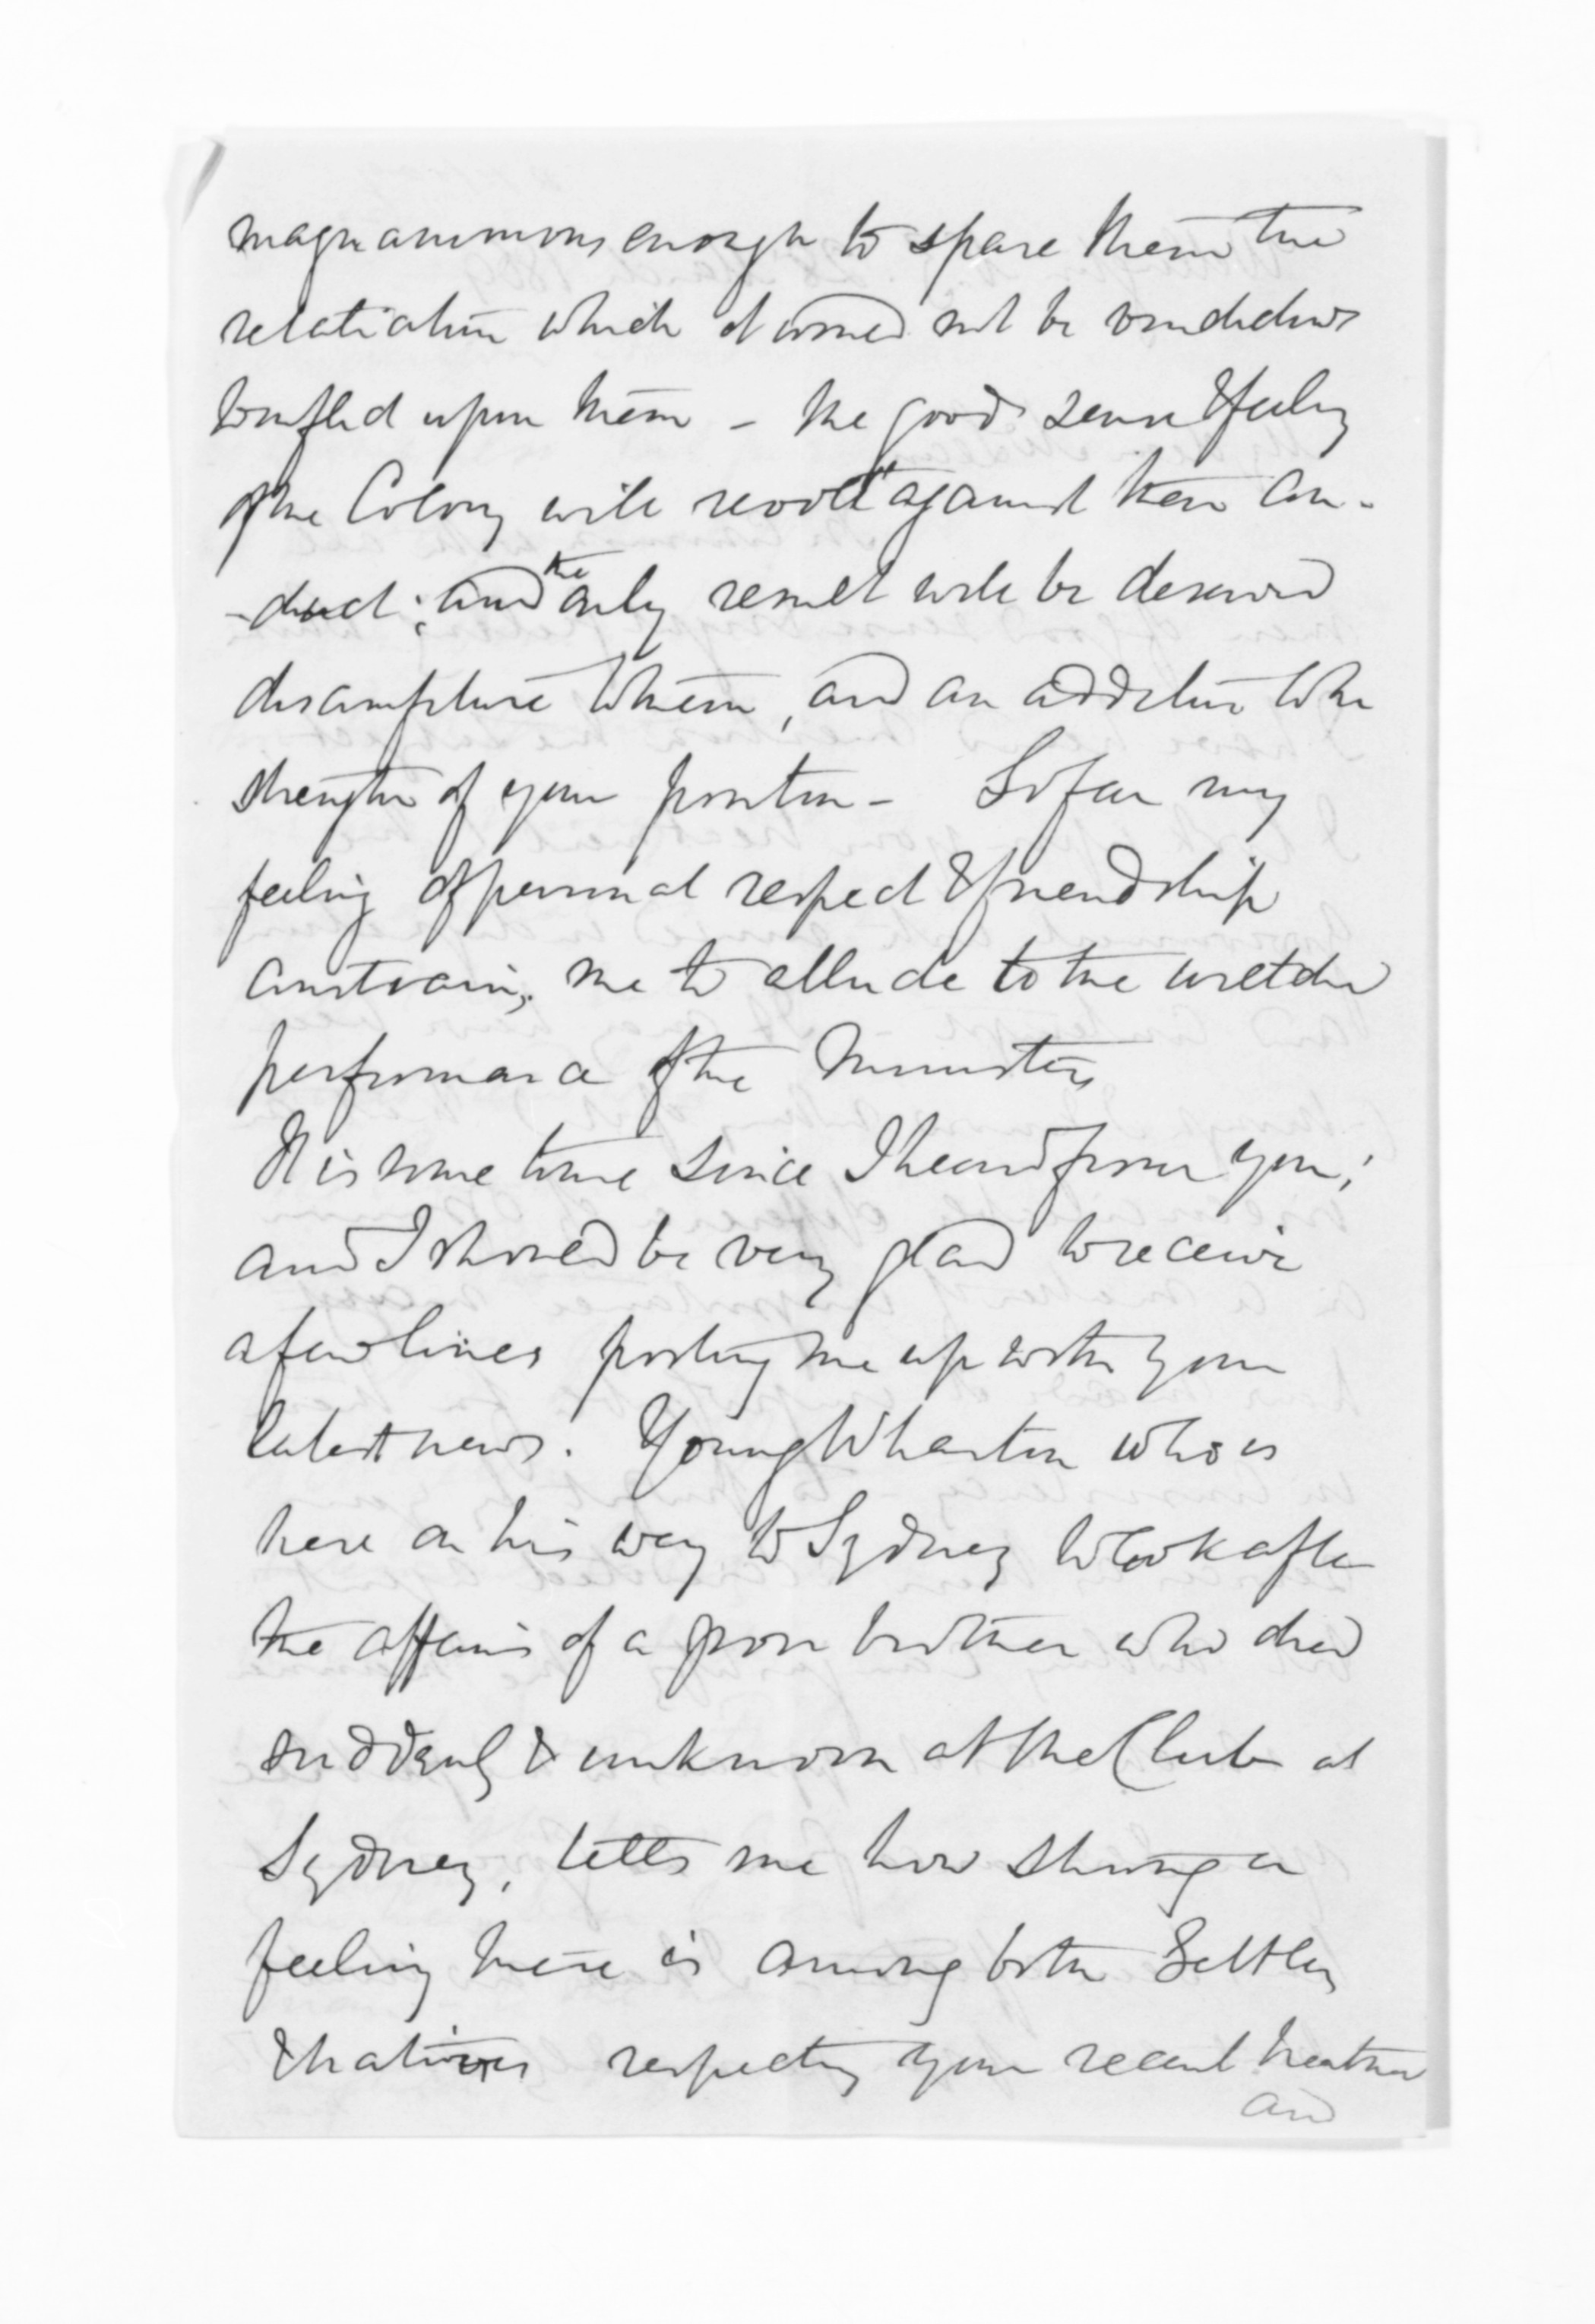 magnanimous enough to spare them the
retaliation which it would not be vindictive
to inflict upon them – the good sense & feeling
of the Colony will revolt against their con-
-duct; and the only result will be deserved
discomfiture to them, and an addition to the
strength of your position – So far my
feeling of personal respect & friendship
constrains me to allude to the wretched
performance of the Ministers
It is some time since I heard from you;
and I should be very glad to receive
a few lines posting me up with your
latest news. Young Wharton who is
here on his way to Sydney to look after
the affairs of a poor brother who died
suddenly & unknown at the Club at
Sydney, tells me how strong a
feeling there is among both Settlers
& natives respecting your recent treatment
and